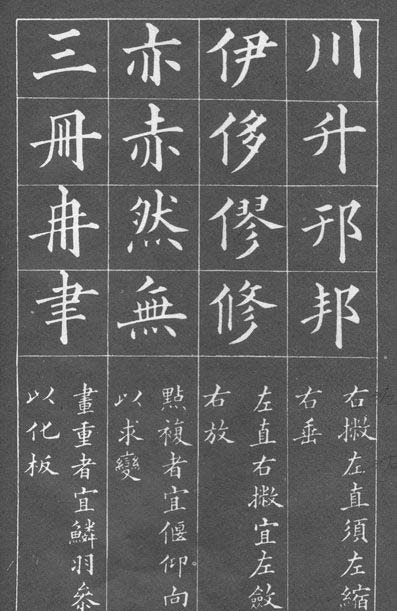 川升邦
右撇左直須左縮
右垂
伊侈僇修
左直右撇宜左斂
右放
亦赤然無
點複者宜偃仰向
以求變
三冊冉聿
畫重者宜鱗羽叅
以化板